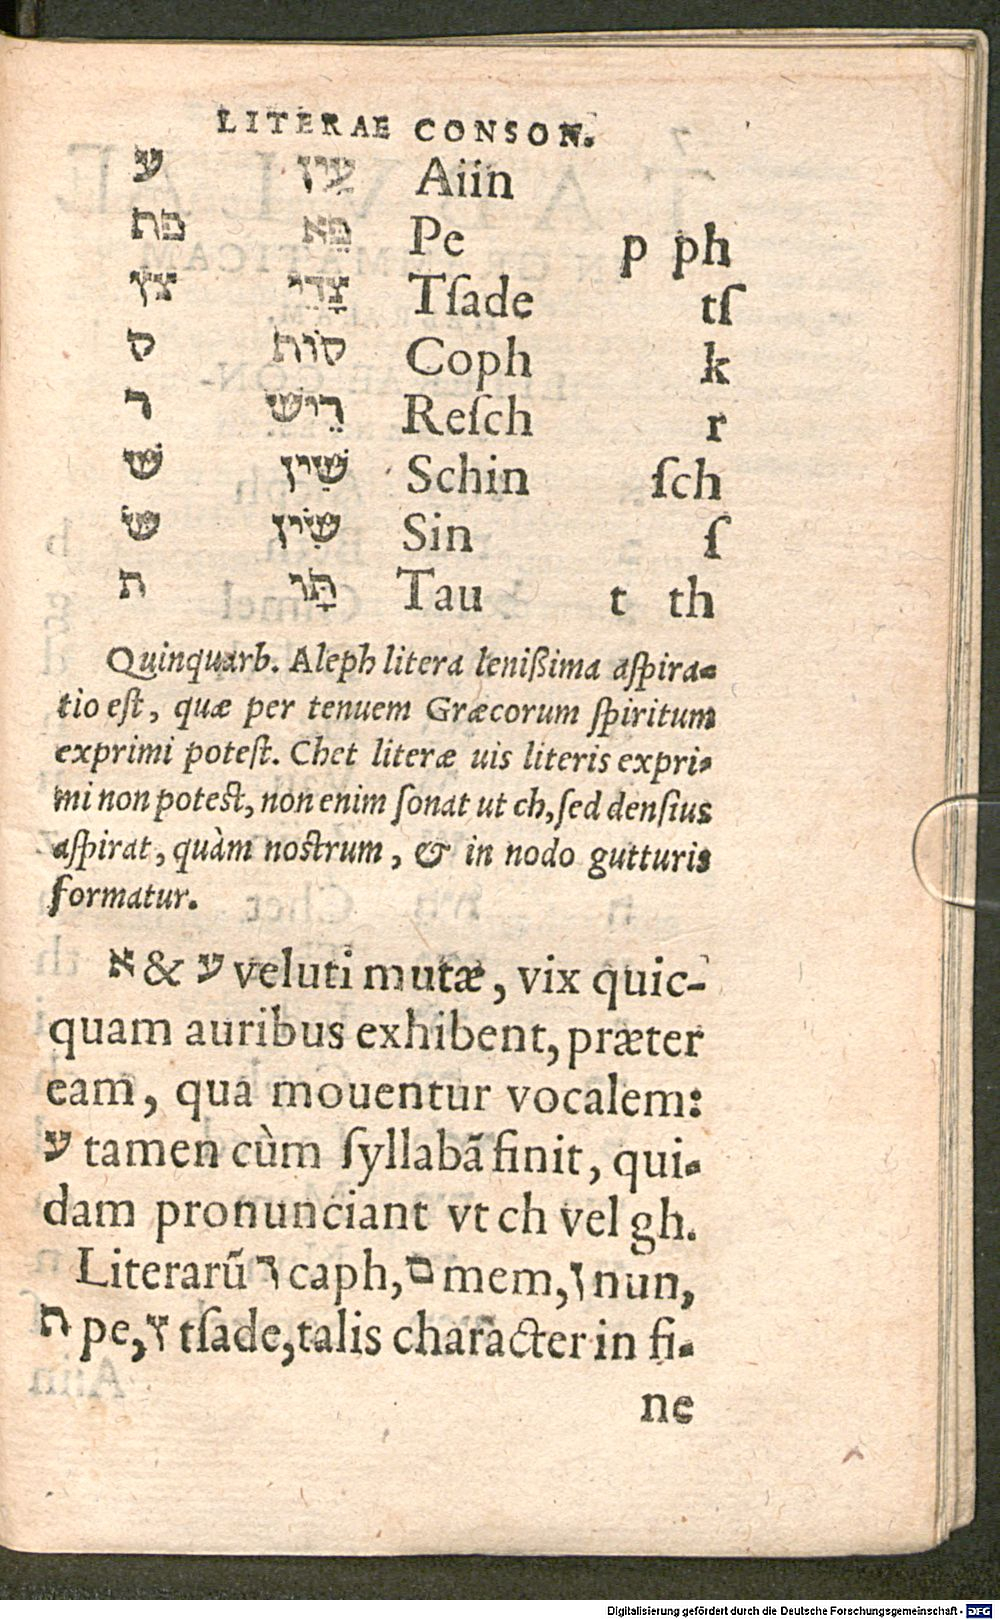 LITERAE CONSON.
ע עַיִן Aiin
פת פֵּא Pe p ph
צץ צָדֵי Tſade tſ
ס סוֹת Coph k
ר רֵישׁ Reſch r
שׁ שִׁין Schin ſch
שׂ שִׂין Sin ſ
ת תָּו Tau t th
Quinquarb. Aleph litera leniſsima aſpira-
tio eſt, quæ per tenuem Græcorum ſpiritum
exprimi poteſt. Chet literæ uis literis expri-
mi non poteſt, non enim ſonat ut ch, ſed denſius
aſpirat, quàm noſtrum, & in nodo gutturis
formatur.
א & ע veluti mutæ, vix quic-
quam auribus exhibent, præter
eam, qua mouentur vocalem:
ע tamen cùm ſyllabã finit, qui-
dam pronunciant vt ch vel gh.
Literarũ ך caph, ם mem, ן nun,
ת pe, ץ tſade, talis character in fi-
ne
Digitalisierung gefördert durch die Deutsche Forschungsgemeinschaft - DFG